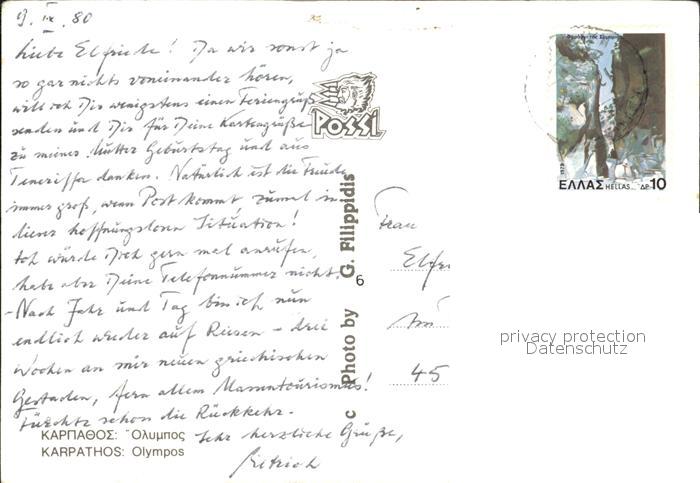 9. IX. 80
Liebe Elfriede! Da wir sonst ja
so gar nichts voneinander hören,
will ich Dir wenigstens einen Feriengruß
senden und Dir für Deine Kartengrüße
zu meiner Mutter Geburtstag und aus
Teneriffa danken. Natürlich ist die Freude
immer groß, wenn Post kommt zumal in
dieser hoffnungslosen Situation!
Ich würde Dich gern mal anrufen,
habe aber Deine Telefonnummer nicht.
- Nach Jahr und Tag bin ich nun
endlich wieder auf Reisen - drei
Wochen an mir neuen griechischen
Gestaden, fern allem Massentourismus!
Fürchte schon die Rückkehr.
Sehr herzliche Grüße,
Dietrich
ΚΑΡΠΑΘΟΣ: Ὄλυμπος
KARPATHOS: Olympos
POSSI
c Photo by G. Filippidis
6
1979
ΕΛΛΑΣ HELLAS ΔΡ 10
Frau
Elfri
Am
45
privacy protection
Datenschutz